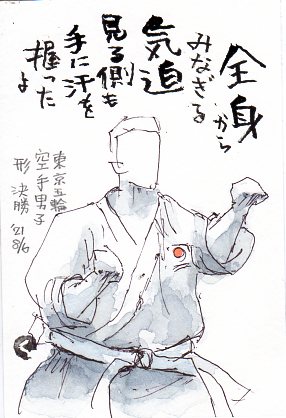 全身から
みなぎる
気迫
見る側も
手に汗を
握った
よ
東京五輪
空手男子
形 決勝 '21
8/6